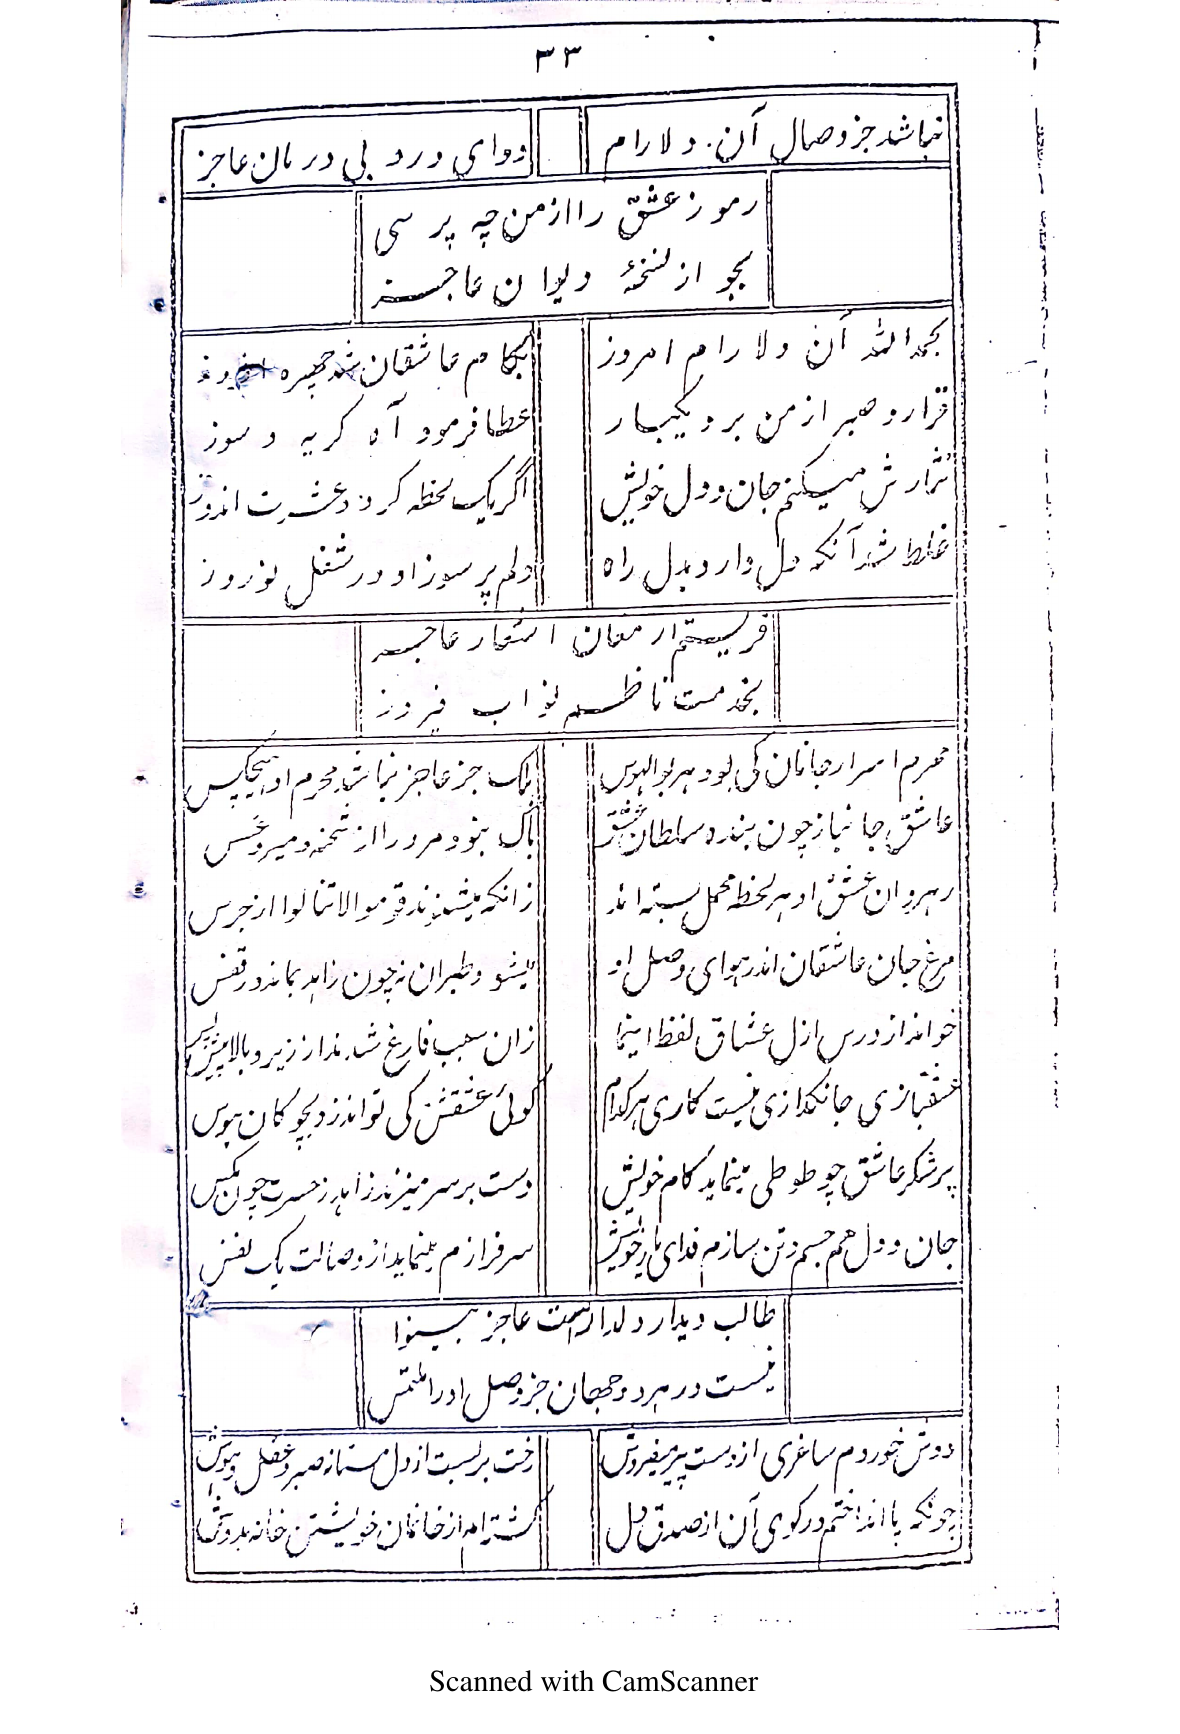 ۳۳
نباشد جز وصال آن دلارام دوای درد بی درمان عاجز
رموز عشق را از من چه پرسی
بجو از نسخهٔ دیوان عاجز
بحمدالله آن دلارام امروز بکام عاشقان شد چهره افروز
قرار و صبر از من برد یکبار عطا فرمود آه گریه و سوز
نثارش میکنم جان و دل خویش اگر یک لحظه گردد عشرت اندوز
غلط شد آنکه دل دارد بدل راه دلم پر سوز او در شغل نوروز
فرستم ارمغان اشعار عاجز
بخدمت ناظم نواب فیروز
محرم اسرار جانان کی بود هر بوالهوس لیک جز عاجز نباشد محرم او هیچکس
عاشق جانباز چون بنده سلطان عشق باک نبود مرورا از شحنه و میر و عسس
رهروان عشق او هر لحظه محمل بسته اند زانکه میشنوند قوموا لاتنالوا از جرس
مرغ جان عاشقان اندر هوای وصل او میشود طیران نه چون زاهد بماند در قفس
خواندا ز درس ازل عشاق لفظ اینما زان سبب فارغ شدند از زیر و بالا پیش و پس
عشقبازی جانگدازی نیست کاری هرکدام گوئی عشقش کی تواند زد بچوگان هوس
پر شکر عاشق چو طوطی مینماید کام خویش دست بر سر میزند زاهد ز حسرت چون مگس
جان و دل هم جسم و تن سازم فدای یار خویش سرفرازم مینماید از وصالت یک نفس
طالب دیدار دلدار است عاجز بینوا
نیست در هر دو جهان جز وصل او را ملتمس
دوش خوردم ساغری از دست پیر میفروش رخت بربست از دل مستانه صبر و عقل و هوش
چونکه پا انداختم در کوی آن از صدق دل گشته ام از خانمان خویشتن خانه بدوش
Scanned with CamScanner